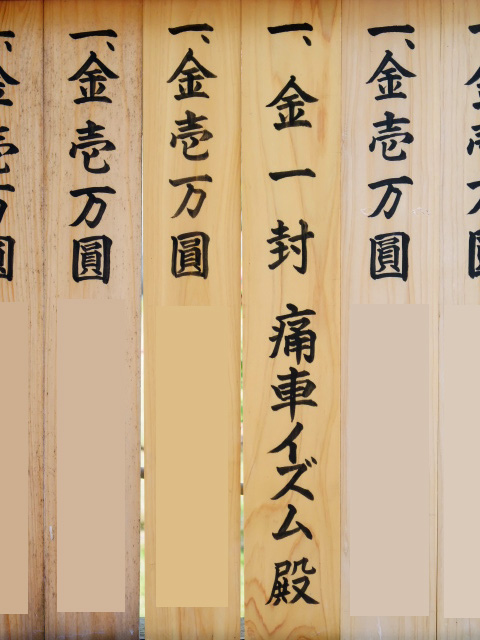 一、金壱万圓
一、金壱万圓
一、金一封 痛車イズム殿
一、金壱万圓
一、金壱万圓
一、金壱万圓